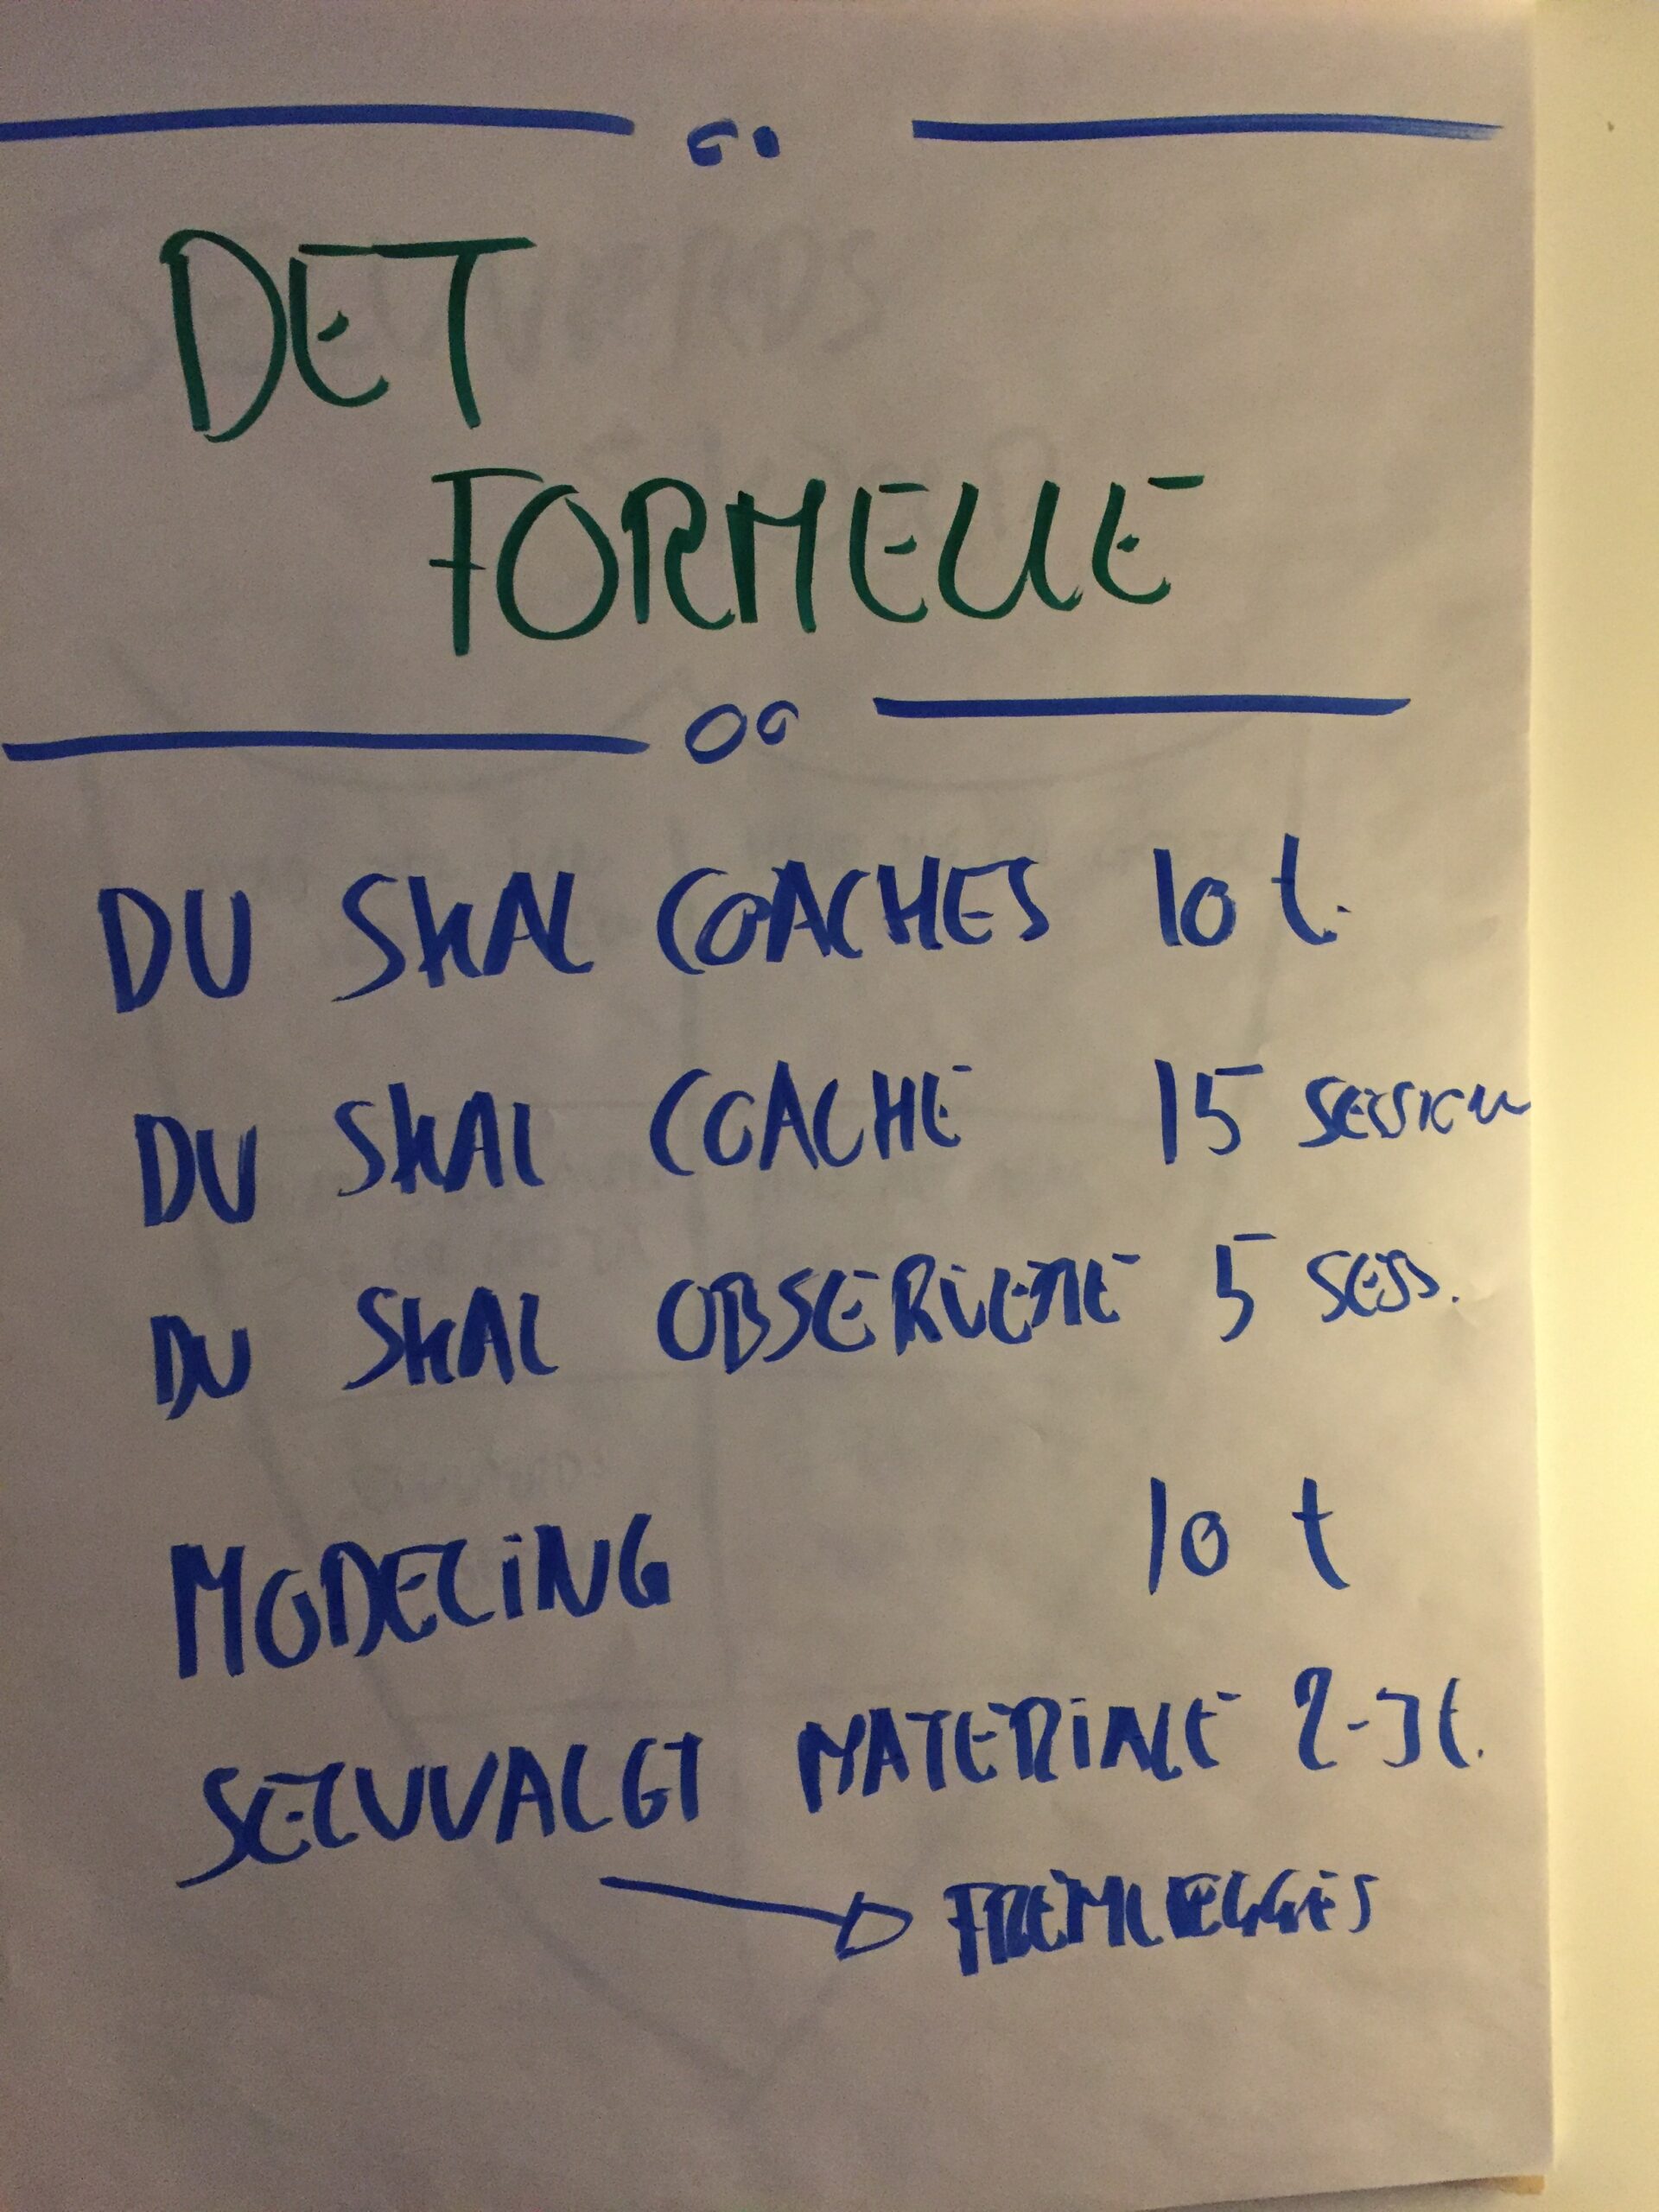 DET
FORMELLE
DU SKAL COACHES 10 t.
DU SKAL COACHE 15 SESSION
DU SKAL OBSERVERE 5 SESS.
MODELING 10 t
SELVVALGT MATERIALE 2-3t.
FREMLEGGES